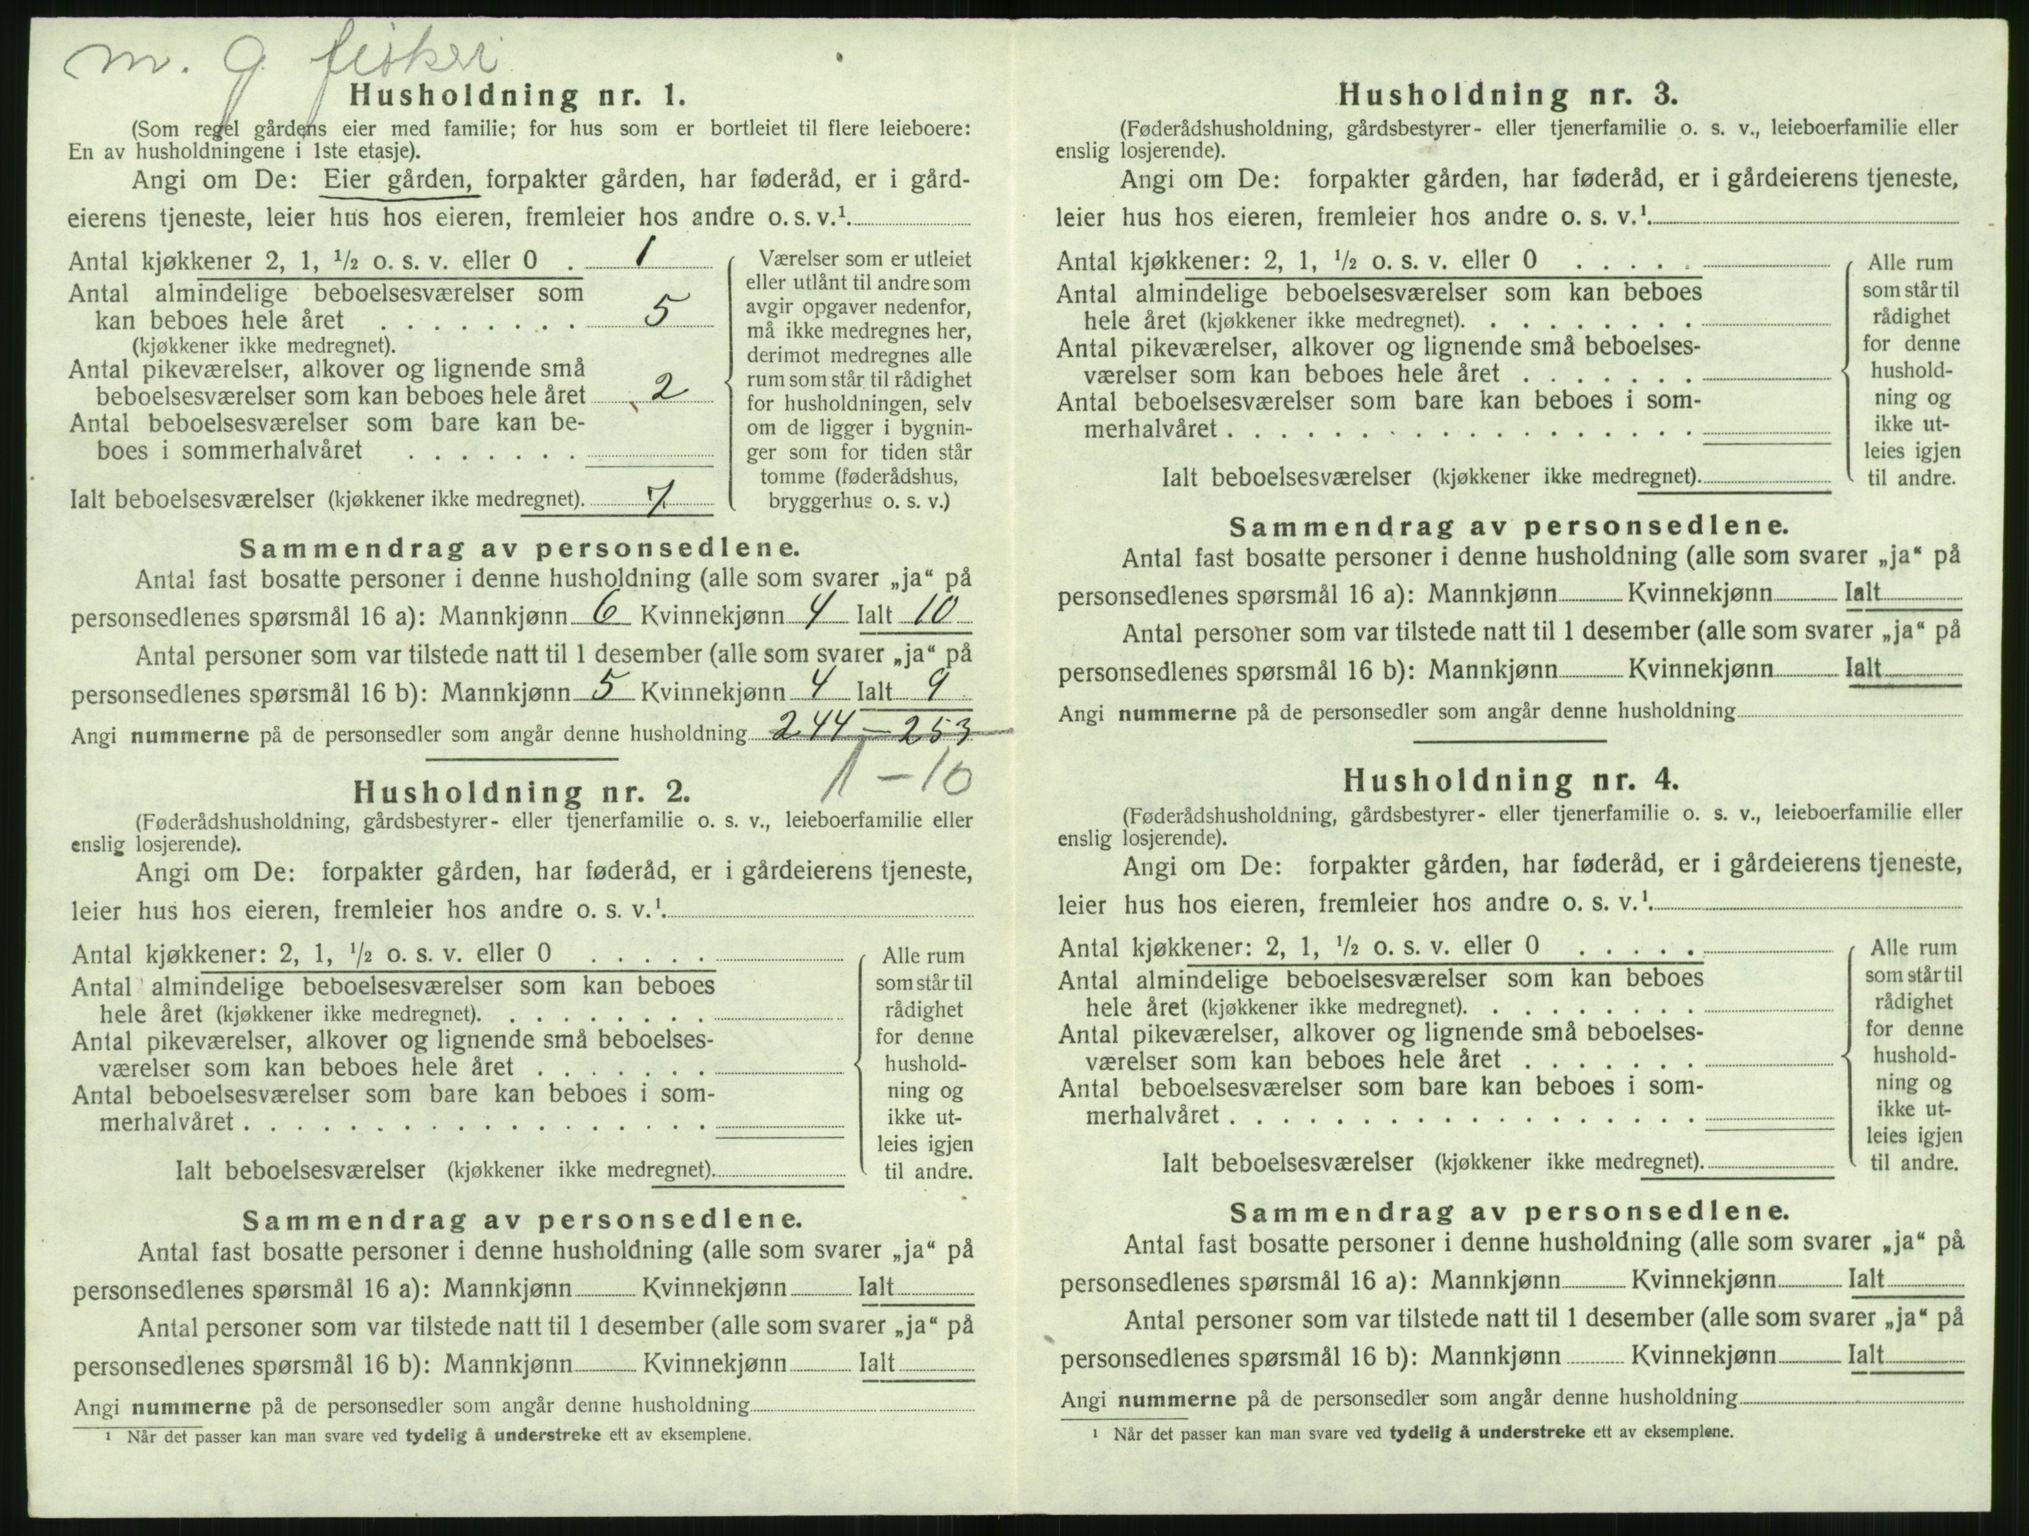 m. g fisker
Husholdning nr. 1.
(Som regel gårdens eier med familie; for hus som er bortleiet til flere leieboere:
En av husholdningene i 1ste etasje).
Angi om De: Eier gården, forpakter gården, har føderåd, er i gård-
eierens tjeneste, leier hus hos eieren, fremleier hos andre o. s. v.¹
Antal kjøkkener 2, 1, ¹/₂ o. s. v. eller 0 . 1
Antal almindelige beboelsesværelser som
kan beboes hele året . . . . . . . . 5
(kjøkkener ikke medregnet).
Antal pikeværelser, alkover og lignende små
beboelsesværelser som kan beboes hele året 2
Antal beboelsesværelser som bare kan be-
boes i sommerhalvåret . . . . . . .
Ialt beboelsesværelser (kjøkkener ikke medregnet). 7
Værelser som er utleiet
eller utlånt til andre som
avgir opgaver nedenfor,
må ikke medregnes her,
derimot medregnes alle
rum som står til rådighet
for husholdningen, selv
om de ligger i bygnin-
ger som for tiden står
tomme (føderådshus,
bryggerhus o. s. v.)
Sammendrag av personsedlene.
Antal fast bosatte personer i denne husholdning (alle som svarer „ja“ på
personsedlenes spørsmål 16 a): Mannkjønn 6 Kvinnekjønn 4 Ialt 10
Antal personer som var tilstede natt til 1 desember (alle som svarer „ja“ på
personsedlenes spørsmål 16 b): Mannkjønn 5 Kvinnekjønn 4 Ialt 9
Angi nummerne på de personsedler som angår denne husholdning 244 — 253
1 — 10
Husholdning nr. 2.
(Føderådshusholdning, gårdsbestyrer- eller tjenerfamilie o. s. v., leieboerfamilie eller
enslig losjerende).
Angi om De: forpakter gården, har føderåd, er i gårdeierens tjeneste,
leier hus hos eieren, fremleier hos andre o. s. v.¹
Antal kjøkkener: 2, 1, ¹/₂ o. s. v. eller 0 . . . . .
Antal almindelige beboelsesværelser som kan beboes
hele året (kjøkkener ikke medregnet). . . . . . . . .
Antal pikeværelser, alkover og lignende små beboelses-
værelser som kan beboes hele året . . . . . . .
Antal beboelsesværelser som bare kan beboes i som-
merhalvåret . . . . . . . . . . . . . . . . . .
Ialt beboelsesværelser (kjøkkener ikke medregnet).
Alle rum
som står til
rådighet
for denne
hushold-
ning og
ikke ut-
leies igjen
til andre.
Sammendrag av personsedlene.
Antal fast bosatte personer i denne husholdning (alle som svarer „ja“ på
personsedlenes spørsmål 16 a): Mannkjønn Kvinnekjønn Ialt
Antal personer som var tilstede natt til 1 desember (alle som svarer „ja“ på
personsedlenes spørsmål 16 b): Mannkjønn Kvinnekjønn Ialt
Angi nummerne på de personsedler som angår denne husholdning
¹ Når det passer kan man svare ved tydelig å understreke ett av eksemplene.
Husholdning nr. 3.
(Føderådshusholdning, gårdsbestyrer- eller tjenerfamilie o. s. v., leieboerfamilie eller
enslig losjerende).
Angi om De: forpakter gården, har føderåd, er i gårdeierens tjeneste,
leier hus hos eieren, fremleier hos andre o. s. v.¹
Antal kjøkkener: 2, 1, ¹/₂ o. s. v. eller 0 . . . . .
Antal almindelige beboelsesværelser som kan beboes
hele året (kjøkkener ikke medregnet). . . . . . . . .
Antal pikeværelser, alkover og lignende små beboelses-
værelser som kan beboes hele året . . . . . . .
Antal beboelsesværelser som bare kan beboes i som-
merhalvåret . . . . . . . . . . . . . . . . . .
Ialt beboelsesværelser (kjøkkener ikke medregnet).
Alle rum
som står til
rådighet
for denne
hushold-
ning og
ikke ut-
leies igjen
til andre.
Sammendrag av personsedlene.
Antal fast bosatte personer i denne husholdning (alle som svarer „ja“ på
personsedlenes spørsmål 16 a): Mannkjønn Kvinnekjønn Ialt
Antal personer som var tilstede natt til 1 desember (alle som svarer „ja“ på
personsedlenes spørsmål 16 b): Mannkjønn Kvinnekjønn Ialt
Angi nummerne på de personsedler som angår denne husholdning
Husholdning nr. 4.
(Føderådshusholdning, gårdsbestyrer- eller tjenerfamilie o. s. v., leieboerfamilie eller
enslig losjerende).
Angi om De: forpakter gården, har føderåd, er i gårdeierens tjeneste,
leier hus hos eieren, fremleier hos andre o. s. v.¹
Antal kjøkkener: 2, 1, ¹/₂ o. s. v. eller 0 . . . . .
Antal almindelige beboelsesværelser som kan beboes
hele året (kjøkkener ikke medregnet). . . . . . . . .
Antal pikeværelser, alkover og lignende små beboelses-
værelser som kan beboes hele året . . . . . . .
Antal beboelsesværelser som bare kan beboes i som-
merhalvåret . . . . . . . . . . . . . . . . . .
Ialt beboelsesværelser (kjøkkener ikke medregnet).
Alle rum
som står til
rådighet
for denne
hushold-
ning og
ikke ut-
leies igjen
til andre.
Sammendrag av personsedlene.
Antal fast bosatte personer i denne husholdning (alle som svarer „ja“ på
personsedlenes spørsmål 16 a): Mannkjønn Kvinnekjønn Ialt
Antal personer som var tilstede natt til 1 desember (alle som svarer „ja“ på
personsedlenes spørsmål 16 b): Mannkjønn Kvinnekjønn Ialt
Angi nummerne på de personsedler som angår denne husholdning
¹ Når det passer kan man svare ved tydelig å understreke ett av eksemplene.